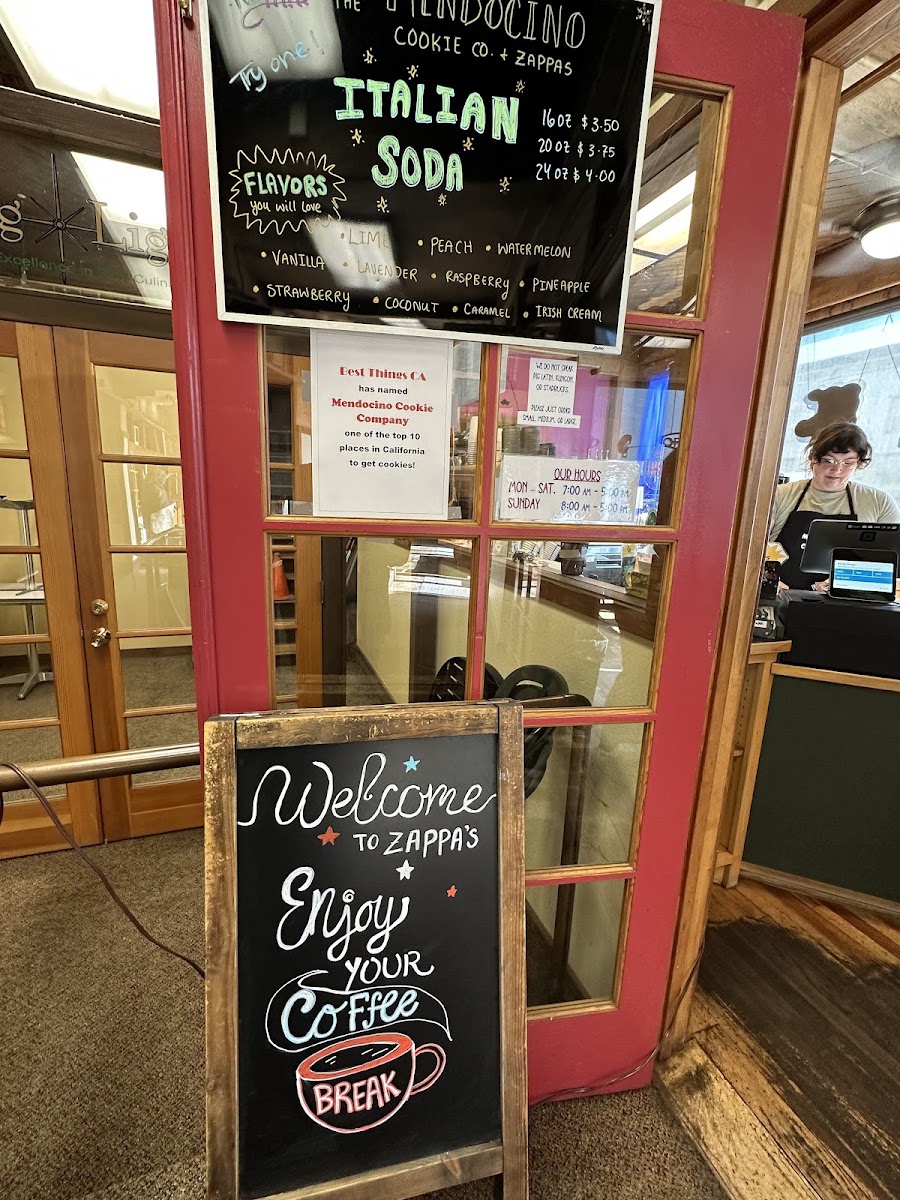 THE MENDOCINO
COOKIE CO. + ZAPPAS
Try one!
ITALIAN
SODA
16 OZ $3.50
20 OZ $3.75
24 OZ $4.00
FLAVORS
you will love
• LIME • PEACH • WATERMELON
• VANILLA • LAVENDER • RASPBERRY • PINEAPPLE
• STRAWBERRY • COCONUT • CARAMEL • IRISH CREAM
Best Things CA
has named
Mendocino Cookie
Company
one of the top 10
places in California
to get cookies!
WE DO NOT SPEAK
PIG LATIN, KLINGON,
OR STARBUCKS.
PLEASE JUST ORDER
SMALL, MEDIUM, OR LARGE.
OUR HOURS
MON - SAT. 7:00 AM - 5:00 PM
SUNDAY 8:00 AM - 5:00 PM
Welcome
TO ZAPPA'S
Enjoy
YOUR
COFFEE
BREAK
Lig
Excellence in